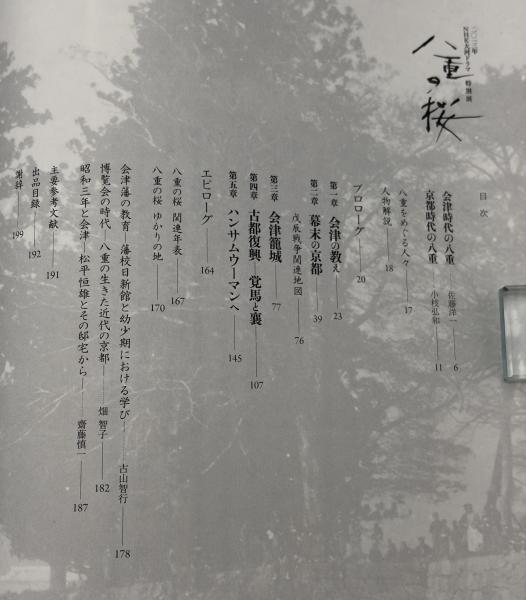 二〇一三年
NHK大河ドラマ 特別展
八重の桜
目次
会津時代の八重 佐藤洋一 6
京都時代の八重 小枝弘和 11
八重をめぐる人々 17
人物解説 18
プロローグ 20
第一章 会津の教え 23
第二章 幕末の京都 39
戊辰戦争関連地図 76
第三章 会津籠城 77
第四章 古都復興 覚馬と襄 107
第五章 ハンサムウーマンへ 145
エピローグ 164
八重の桜 関連年表 167
八重の桜 ゆかりの地 170
会津藩の教育 藩校日新館と幼少期における学び 古山智行 178
博覧会の時代 八重の生きた近代の京都 畑 智子 182
昭和三年と会津 松平恒雄とその邸宅から 齋藤慎一 187
主要参考文献 191
出品目録 192
謝辞 199